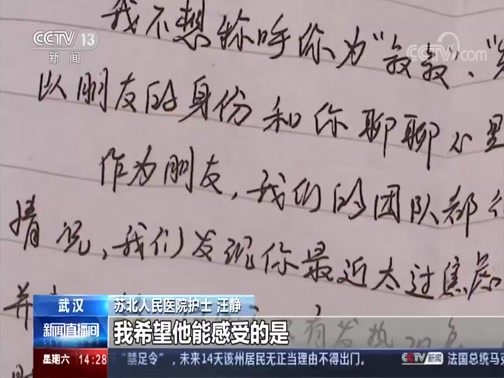 CCTV 13
新闻
CCTV.com
我不想称呼你为"叔叔"、
以朋友的身份和你聊聊心里
作为朋友,我们的团队都
情况,我们发现你最近太过焦虑
并
有发热
武汉
苏北人民医院护士 汪静
新闻直播间
我希望他能感受的是
星期六 14:28
"禁足令",未来14天该州居民无正当理由不得出门。
CCTV新闻
法国总统马